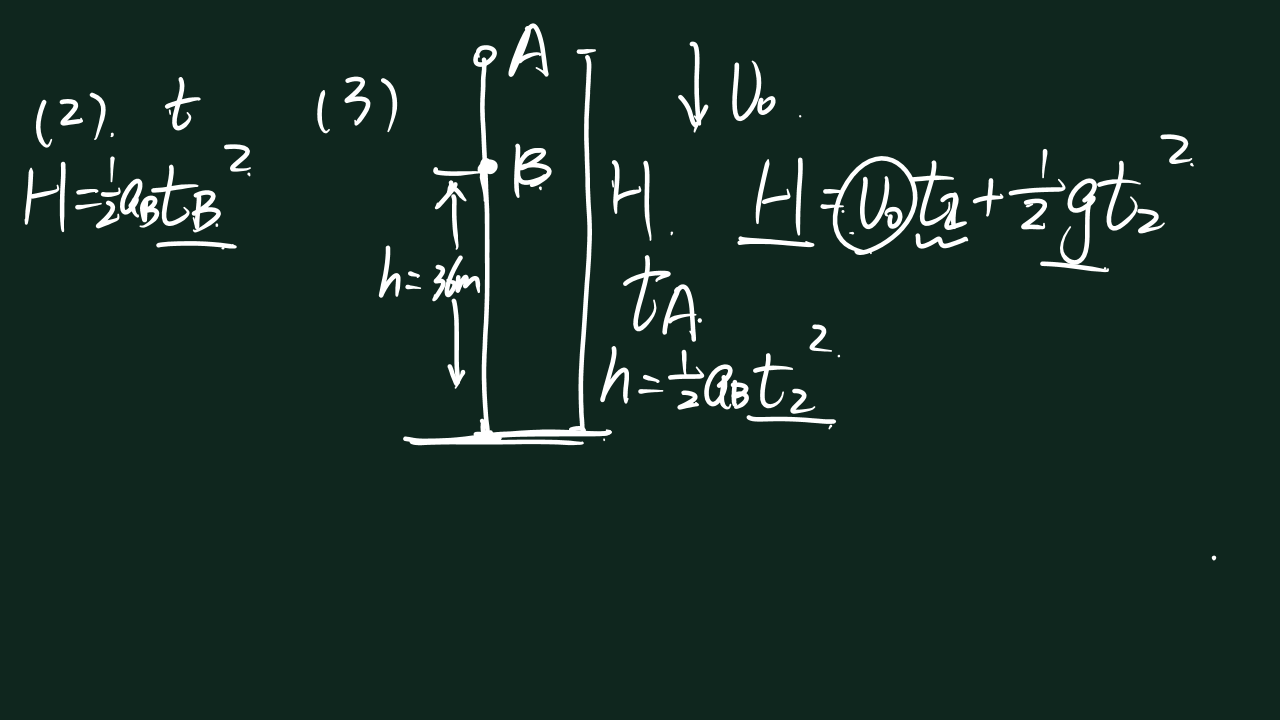 (2). t
H=½a_B t_B²
(3)
A
B
h=36m
H
t_A
h=½a_B t₂²
↓ v₀
H=v₀t₂+½gt₂²